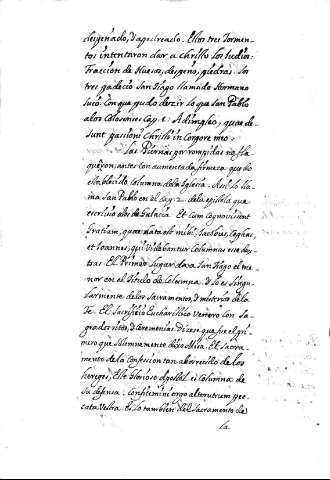 despeñado, y apedreado. Estos tres tormen-
tos intentaron dar a christo los Iudios:
Fraccion de Huesos, despeño, piedras. Los
tres padecio San Tiago llamado Hermano
suio. Con que pudo dezir lo que San Pablo
a los Colosenses Cap. 1. Adimpleo, quae de-
sunt passioni Christi in Corpore meo.
Las Piernas por rompidas no fla-
queron, antes con aumentada firmeza quedo
establecido columna de la Iglesia. Assi lo lla-
ma San Pablo en el Cap. 2. de la epistola que
escrivio a los de Galacia. Et cum cognovissent
gratiam, quae data est mihi, Iacobus, Cephas,
et Ioannes, qui Videbantur Columnae esse dex-
tras. El Primer Lugar da a San Tiago el me-
nor en el titulo de Columna. Y lo es singu-
larmente de los Sacramentos, y misterios de la
Fe. El Sacrificio Eucharistico venero con sa-
grados ritos, y Ceremonias. Dizese que fue el pri-
mero que solemnemente dixo Missa. El Sacra-
mento de la Confession tan aborrecido de los
hereges, Este glorioso Apostol es Columna de
su defensa: Confitemini ergo alterutrum pec-
cata Vestra. Eslo tambien del Sacramento de
la